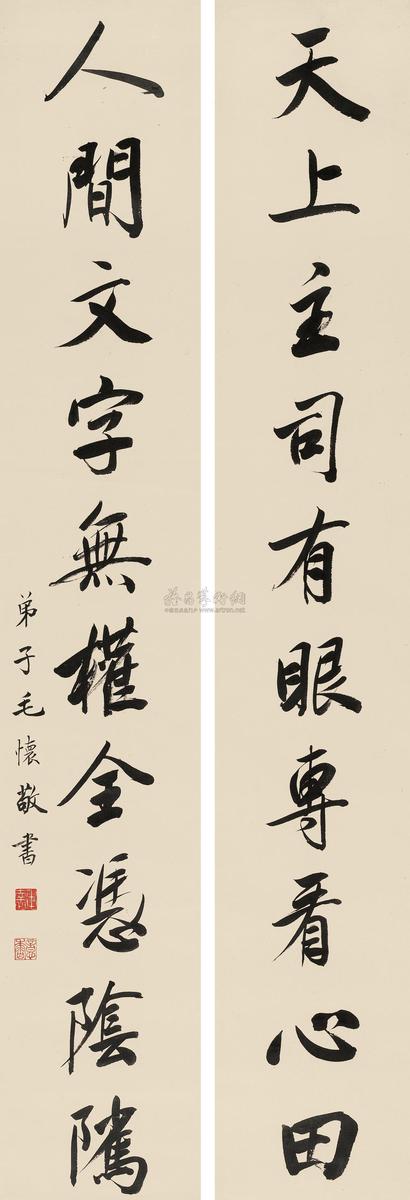 天上主司有眼專看心田
人間文字無權全憑陰騭
弟子毛懷敬書
www.artron.net